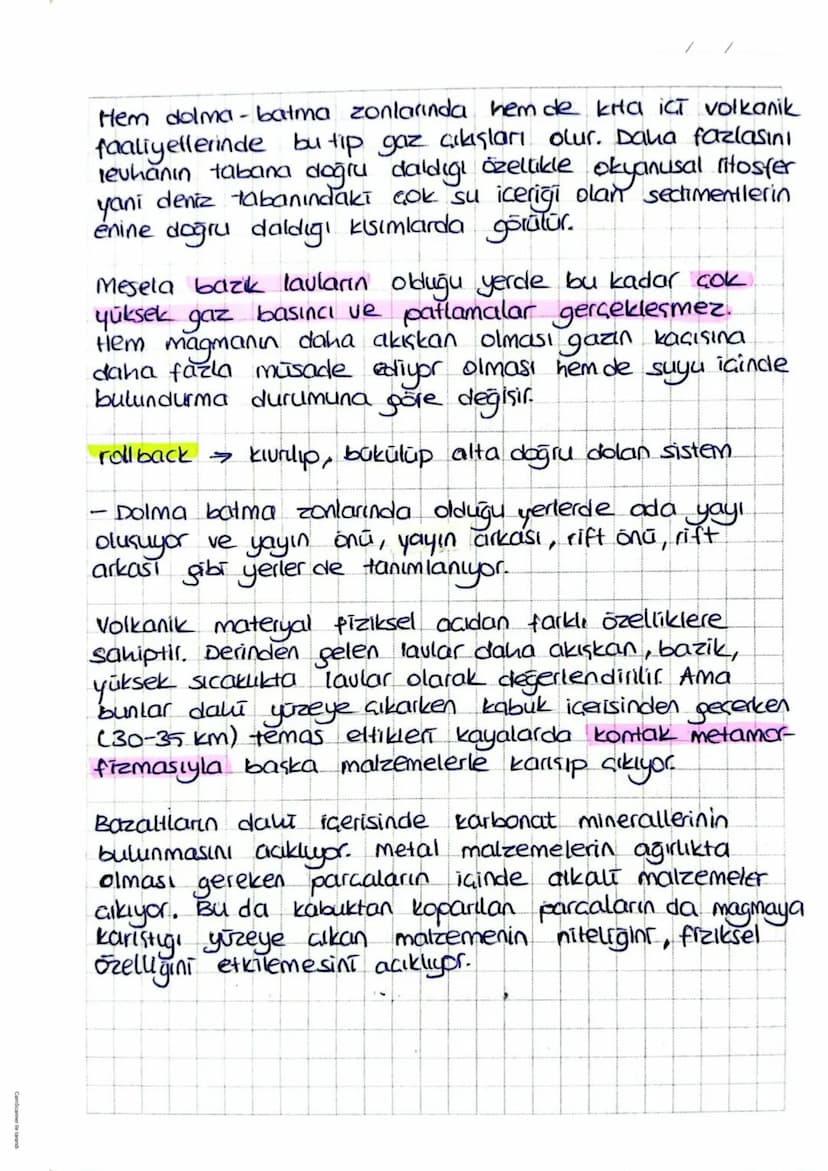 / /
Hem dalma-batma zonlarında hem de kıta içi volkanik
faaliyetlerinde bu tip gaz çıkışları olur. Daha fazlasını
levhanın tabana doğru daldığı özellikle okyanusal litosfer
yani deniz tabanındaki çok su içeriği olan sedimentlerin
enine doğru daldığı kısımlarda görülür.
Mesela bazik lavların olduğu yerde bu kadar çok
yüksek gaz basıncı ve patlamalar gerçekleşmez.
Hem magmanın daha akışkan olması gazın kaçışına
daha fazla müsade ediyor olması hem de suyu içinde
bulundurma durumuna göre değişir.
rollback → kıvrılıp, bükülüp alta doğru dalan sistem
- Dalma batma zonlarında olduğu yerlerde ada yayı
oluşuyor ve yayın önü, yayın arkası, rift önü, rift
arkası gibi yerler de tanımlanıyor.
Volkanik materyal fiziksel açıdan farklı özelliklere
sahiptir. Derinden gelen lavlar daha akışkan, bazik,
yüksek sıcaklıkta lavlar olarak değerlendirilir. Ama
bunlar dahi yüzeye çıkarken kabuk içerisinden geçerken
(30-35 km) temas ettikleri kayalarda kontak metamor-
fizmasıyla başka malzemelerle karışıp çıkıyor.
Bazaltların dahi içerisinde karbonat minerallerinin
bulunmasını açıklıyor. Metal malzemelerin ağırlıkta
olması gereken parçaların içinde alkali malzemeler
çıkıyor. Bu da kabuktan koparılan parçaların da magmaya
karıştığı yüzeye çıkan malzemenin niteliğini, fiziksel
özelliğini etkilemesini açıklıyor.
CamScanner ile tarandı